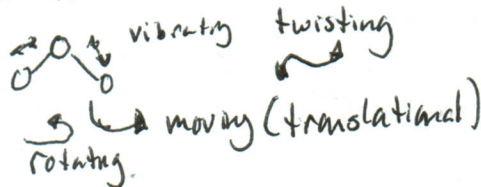 vibrating twisting
moving (translational)
rotating